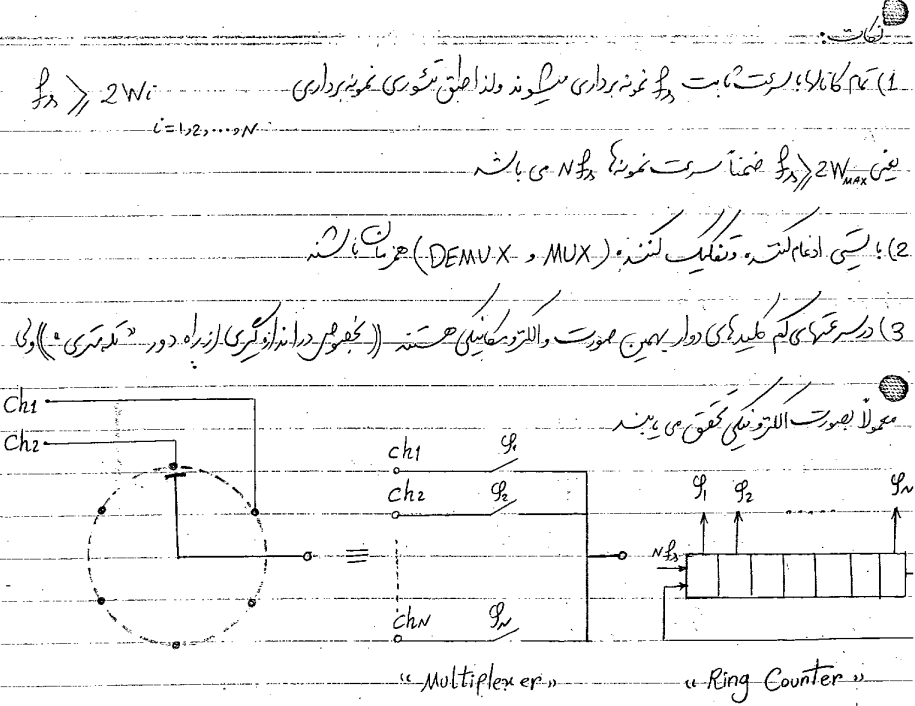 نکات:
1) تمام کانالها با سرعت ثابت fs نمونه برداری میشوند ولذا طبق تئوری نمونه برداری fs ≥ 2Wi
i=1,2,...,N
یعنی fs ≥ 2WMAX ضمناً سرعت نمونه‌ها Nfs می باشد
2) بایستی ادغام کننده و تفکیک کننده (MUX و DEMUX) همزمان باشند
3) در سرعتهای کم کلیدهای دوار بهمین صورت و الکترومکانیکی هستند (بخصوص در اندازه گیری از راه دور "تله متری") ولی
معمولاً بصورت الکترونیکی تحقق می یابند
Ch1
Ch2
≡
ch1 φ1
ch2 φ2
chN φN
"Multiplexer"
φ1 φ2 ..... φN
Nfs
"Ring Counter"